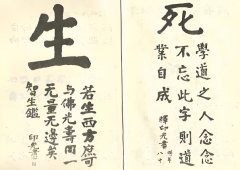 死
學道之人念念
不忘此字則道
業自成
釋印光書
生
若生西方庶可
与佛光壽同一
无量无邊矣
智生鑑
印光書